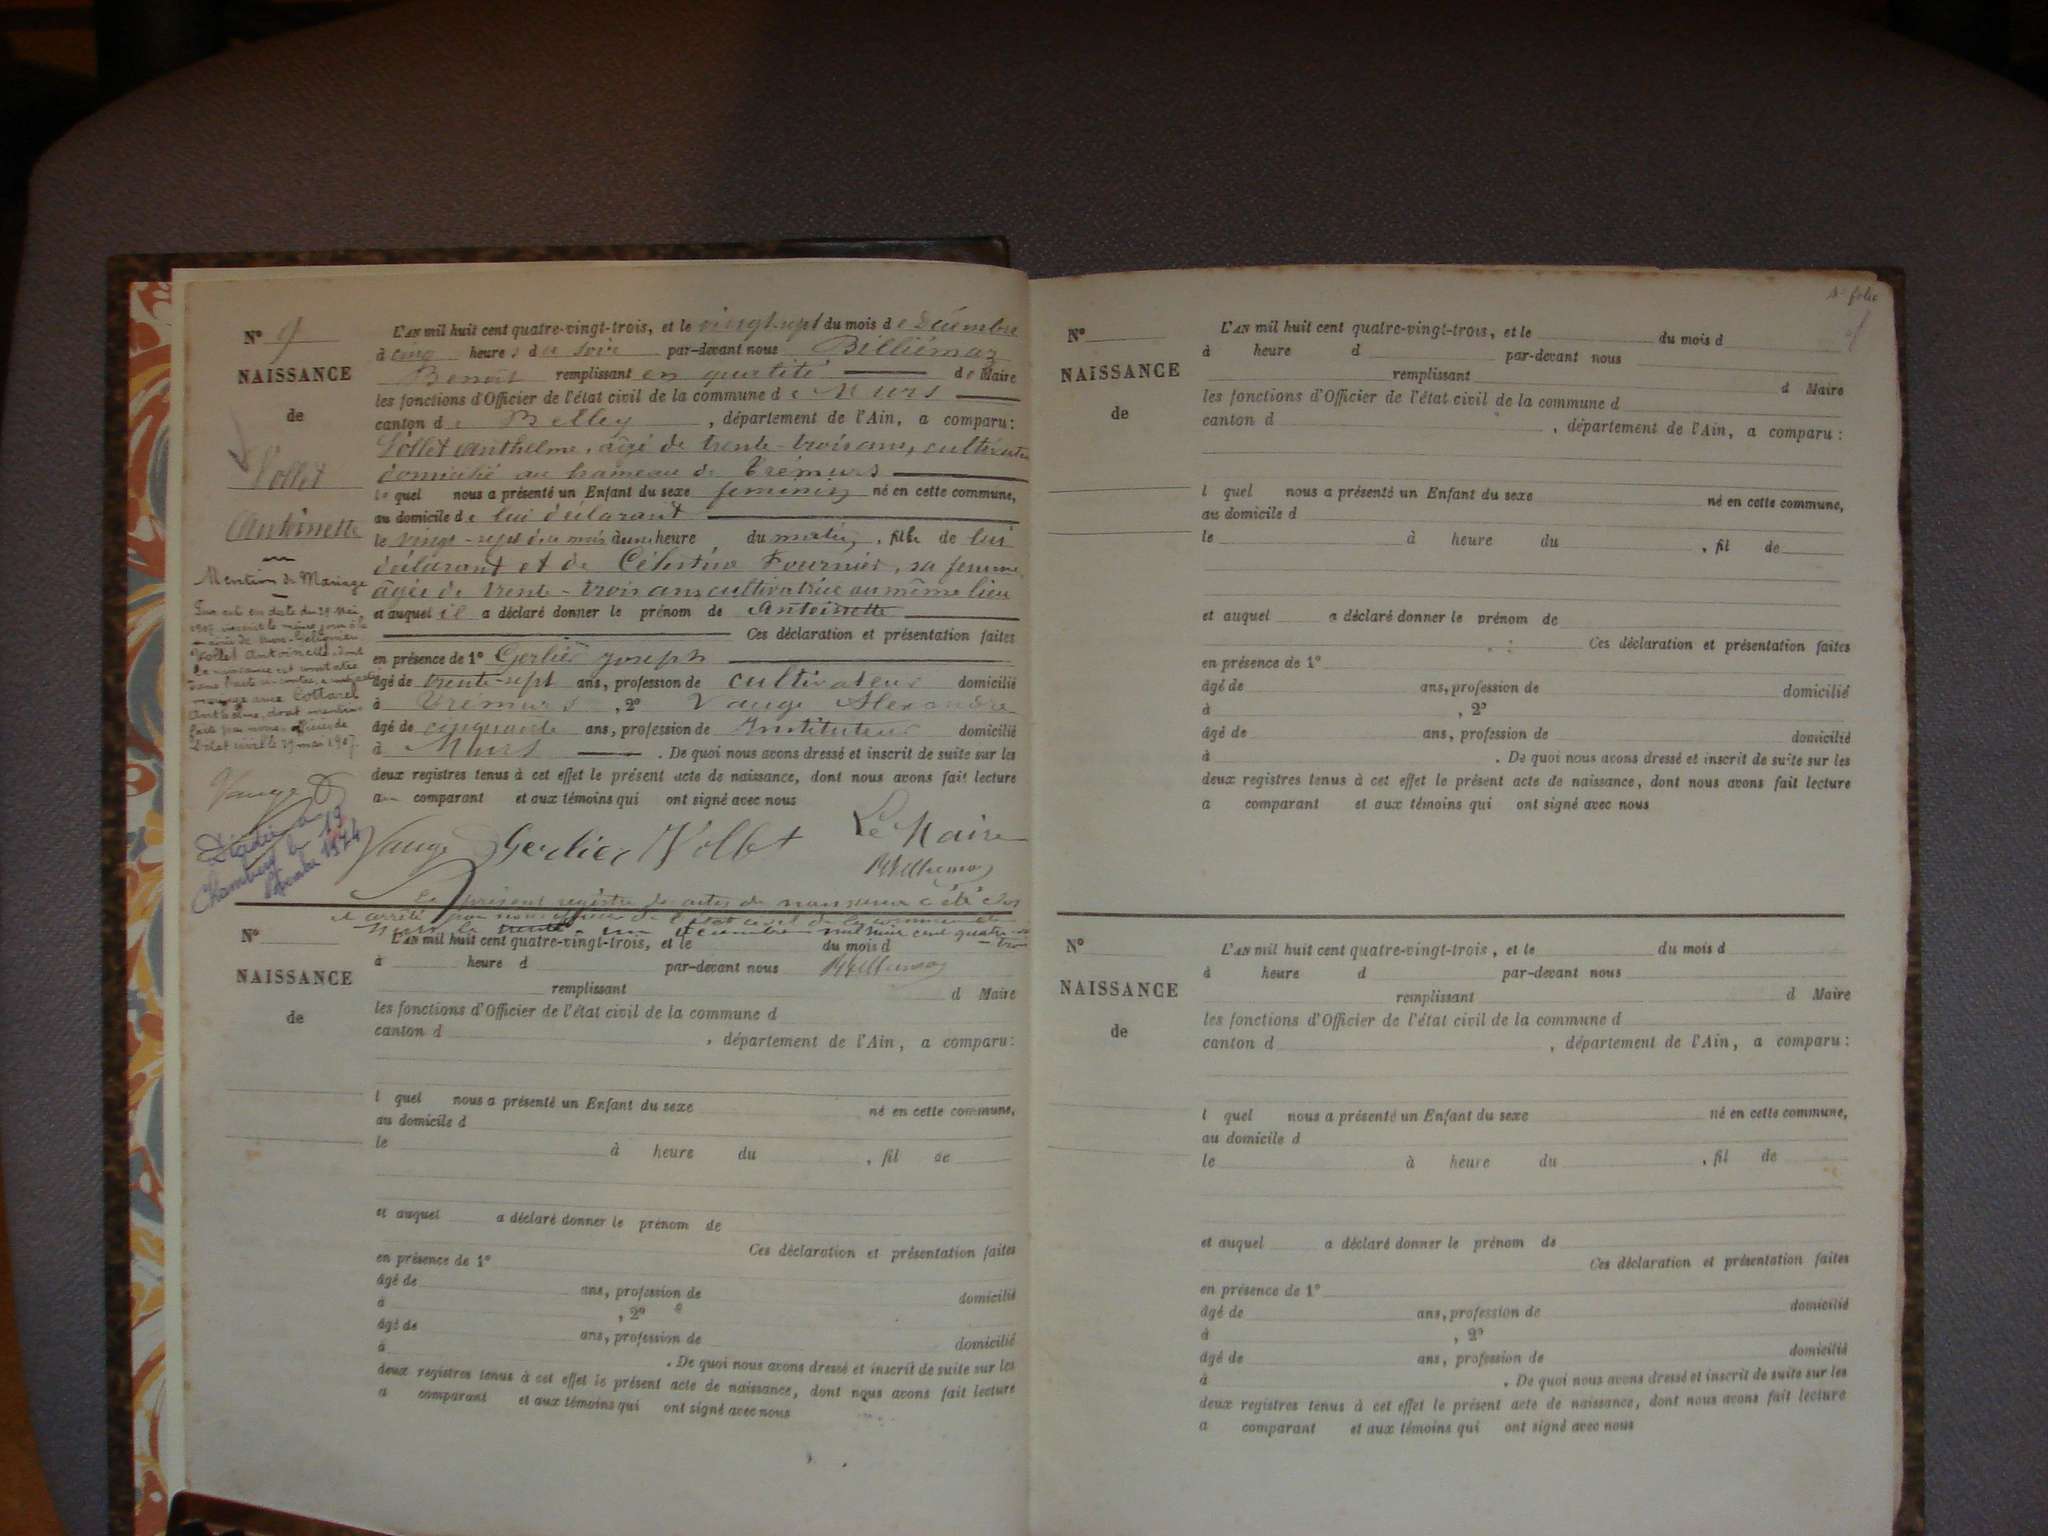 Nº 9
NAISSANCE
de
Vollet
Antoinette
Mention de Mariage
Par acte en date du 29 Mai
1907 inscrit le même jour à la
mairie de Murs-Gélignieux
Vollet Antoinette, dont
la naissance est constatée
dans l'acte ci-contre, a contracté
mariage avec Cottarel
Anthelme, dont mention
faite par nous, officier de
l'état civil le 29 mai 1907.
Vauge
Décédée à
Chambéry le 19
1974
L'AN mil huit cent quatre-vingt-trois, et le vingt-sept du mois de Décembre
à cinq heures du soir par-devant nous Billiémaz
Benoît remplissant en qualité de Maire
les fonctions d'Officier de l'état civil de la commune de Murs
canton de Belley, département de l'Ain, a comparu:
Vollet Anthelme, âgé de trente-trois ans, cultivateur
domicilié au hameau de Trémurs
lequel nous a présenté un Enfant du sexe féminin né en cette commune,
au domicile de lui déclarant
le vingt-sept du mois à une heure du matin, fille de lui
déclarant et de Célestine Fournier, sa femme,
âgée de trente-trois ans cultivatrice au même lieu
et auquel il a déclaré donner le prénom de Antoinette
Ces déclaration et présentation faites
en présence de 1º Gerlier Joseph
âgé de trente-sept ans, profession de cultivateur domicilié
à Trémurs, 2º Vauge Alexandre
âgé de cinquante ans, profession de Instituteur domicilié
à Murs. De quoi nous avons dressé et inscrit de suite sur les
deux registres tenus à cet effet le présent acte de naissance, dont nous avons fait lecture
au comparant et aux témoins qui ont signé avec nous
Vauge Gerlier Vollet Le Maire
Billiémaz
Le présent registre des actes de naissance a été clos
et arrêté par nous officier de l'état civil de la commune de
Murs le trente-un décembre mil huit cent quatre-vingt-trois
Billiémaz
Nº
NAISSANCE
de
L'AN mil huit cent quatre-vingt-trois, et le du mois d
à heure d par-devant nous
remplissant d Maire
les fonctions d'Officier de l'état civil de la commune d
canton d , département de l'Ain, a comparu:
l quel nous a présenté un Enfant du sexe né en cette commune,
au domicile d
le à heure du , fil de
et auquel a déclaré donner le prénom de
Ces déclaration et présentation faites
en présence de 1º
âgé de ans, profession de domicilié
à , 2º
âgé de ans, profession de domicilié
à . De quoi nous avons dressé et inscrit de suite sur les
deux registres tenus à cet effet le présent acte de naissance, dont nous avons fait lecture
a comparant et aux témoins qui ont signé avec nous
folio
Nº
NAISSANCE
de
L'AN mil huit cent quatre-vingt-trois, et le du mois d
à heure d par-devant nous
remplissant d Maire
les fonctions d'Officier de l'état civil de la commune d
canton d , département de l'Ain, a comparu:
l quel nous a présenté un Enfant du sexe né en cette commune,
au domicile d
le à heure du , fil de
et auquel a déclaré donner le prénom de
Ces déclaration et présentation faites
en présence de 1º
âgé de ans, profession de domicilié
à , 2º
âgé de ans, profession de domicilié
à . De quoi nous avons dressé et inscrit de suite sur les
deux registres tenus à cet effet le présent acte de naissance, dont nous avons fait lecture
a comparant et aux témoins qui ont signé avec nous
Nº
NAISSANCE
de
L'AN mil huit cent quatre-vingt-trois, et le du mois d
à heure d par-devant nous
remplissant d Maire
les fonctions d'Officier de l'état civil de la commune d
canton d , département de l'Ain, a comparu:
l quel nous a présenté un Enfant du sexe né en cette commune,
au domicile d
le à heure du , fil de
et auquel a déclaré donner le prénom de
Ces déclaration et présentation faites
en présence de 1º
âgé de ans, profession de domicilié
à , 2º
âgé de ans, profession de domicilié
à . De quoi nous avons dressé et inscrit de suite sur les
deux registres tenus à cet effet le présent acte de naissance, dont nous avons fait lecture
a comparant et aux témoins qui ont signé avec nous